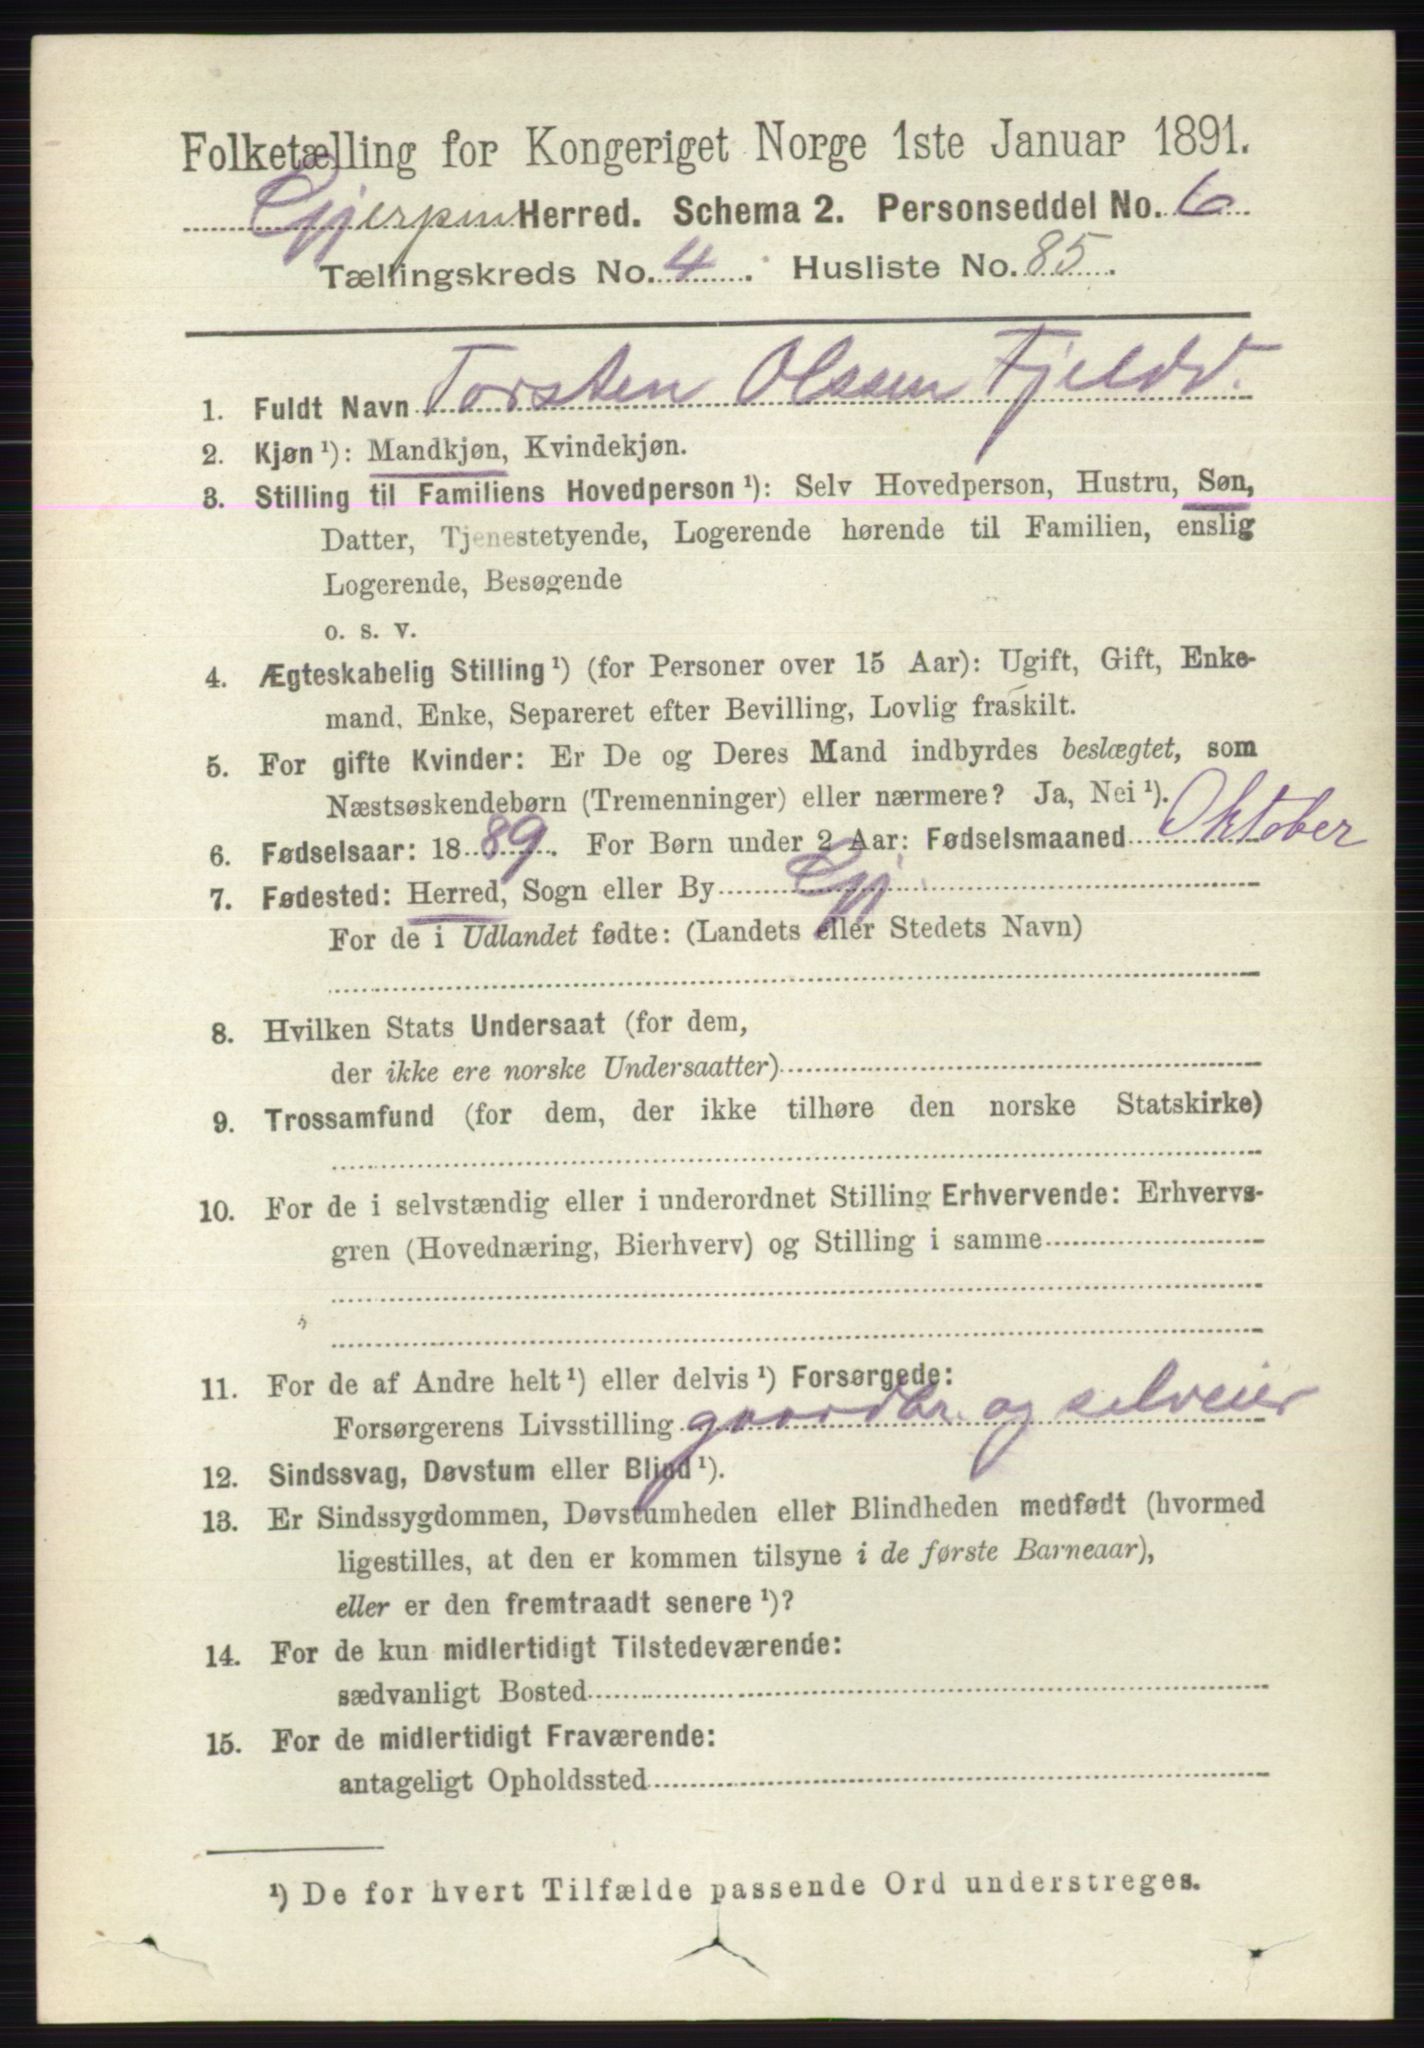 Folketælling for Kongeriget Norge 1ste Januar 1891.
Gjerpen Herred. Schema 2. Personseddel No. 6
Tællingskreds No. 4. Husliste No. 85.
1. Fuldt Navn Torsten Olssen Fjeld.
2. Kjøn ¹): Mandkjøn, Kvindekjøn.
3. Stilling til Familiens Hovedperson ¹): Selv Hovedperson, Hustru, Søn,
Datter, Tjenestetyende, Logerende hørende til Familien, enslig
Logerende, Besøgende
o. s. v.
4. Ægteskabelig Stilling ¹) (for Personer over 15 Aar): Ugift, Gift, Enke-
mand, Enke, Separeret efter Bevilling, Lovlig fraskilt.
5. For gifte Kvinder: Er De og Deres Mand indbyrdes beslægtet, som
Næstsøskendebørn (Tremenninger) eller nærmere? Ja, Nei ¹).
6. Fødselsaar: 1889. For Børn under 2 Aar: Fødselsmaaned Oktober
7. Fødested: Herred, Sogn eller By Gj.
For de i Udlandet fødte: (Landets eller Stedets Navn)
8. Hvilken Stats Undersaat (for dem,
der ikke ere norske Undersaatter)
9. Trossamfund (for dem, der ikke tilhøre den norske Statskirke)
10. For de i selvstændig eller i underordnet Stilling Erhvervende: Erhvervs-
gren (Hovednæring, Bierhverv) og Stilling i samme
11. For de af Andre helt ¹) eller delvis ¹) Forsørgede:
Forsørgerens Livsstilling gaardbr. og selveier
12. Sindssvag, Døvstum eller Blind ¹).
13. Er Sindssygdommen, Døvstumheden eller Blindheden medfødt (hvormed
ligestilles, at den er kommen tilsyne i de første Barneaar),
eller er den fremtraadt senere ¹)?
14. For de kun midlertidigt Tilstedeværende:
sædvanligt Bosted
15. For de midlertidigt Fraværende:
antageligt Opholdssted
¹) De for hvert Tilfælde passende Ord understreges.